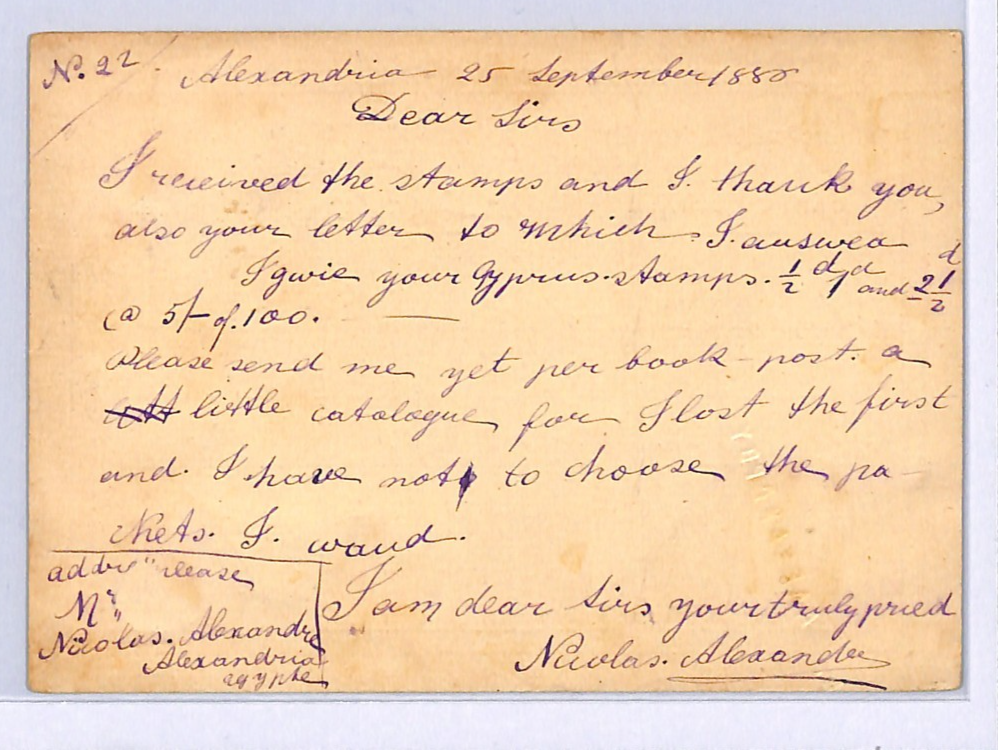 No. 22 Alexandria 25 September 1880
Dear Sirs
I received the stamps and I. thank you,
also your letter to which I. answea
I gwie your Cyprus. stamps. ½ d 1 d and 2½ d
@ 5/- of. 100.
Please send me yet per book-post. a
little catalogue for I lost the first
and. I have not to choose the pa
kets. I. wand.
addre" please
Mr
Nicolas. Alexandre
Alexandria
I am dear Sirs your truly
Nicolas. Alexandre